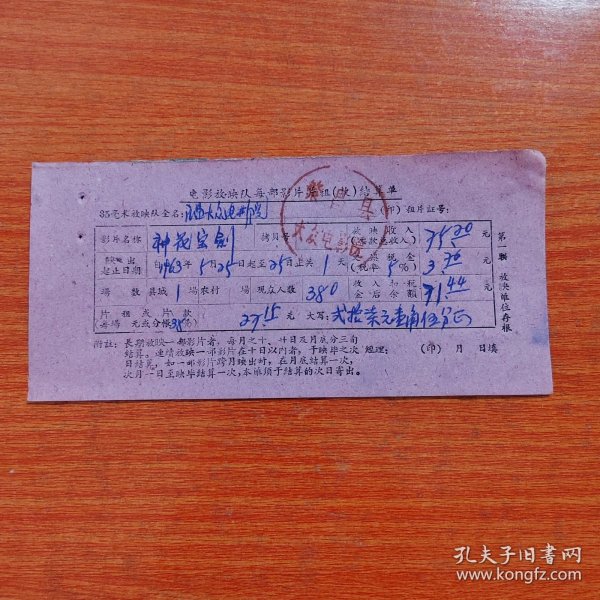 电影放映队每部影片片租(款)结算单
35毫米放映队全名: 大众电影院 (印) 租片証号:
影片名称 神花宝剑 拷貝号 放映收入 75.20 元
映出起止日期 自1963年5月25日起至25日止共1天 (税率5%) 3.76 元
場数 县城1場 农村 場 观众人数 380 收入扣税金后余額 71.44 元
片租或片款 每場元或分帳38% 27.15 元 大写: 弍拾柒元壹角伍分正
第一联 放映单位存根
附註: 長期放映一部影片者, 每月之十、廿日及月底分三向
結算, 連續放映一部影片在十日以內者, 于映毕之次 經理: (印) 月 日填
日結算, 如一部影片跨月映出时, 在月底結算一次,
次月一日至映毕結算一次, 本联須于結算的次日寄出。
大众电影院
孔夫子旧书网
www.kongfz.com